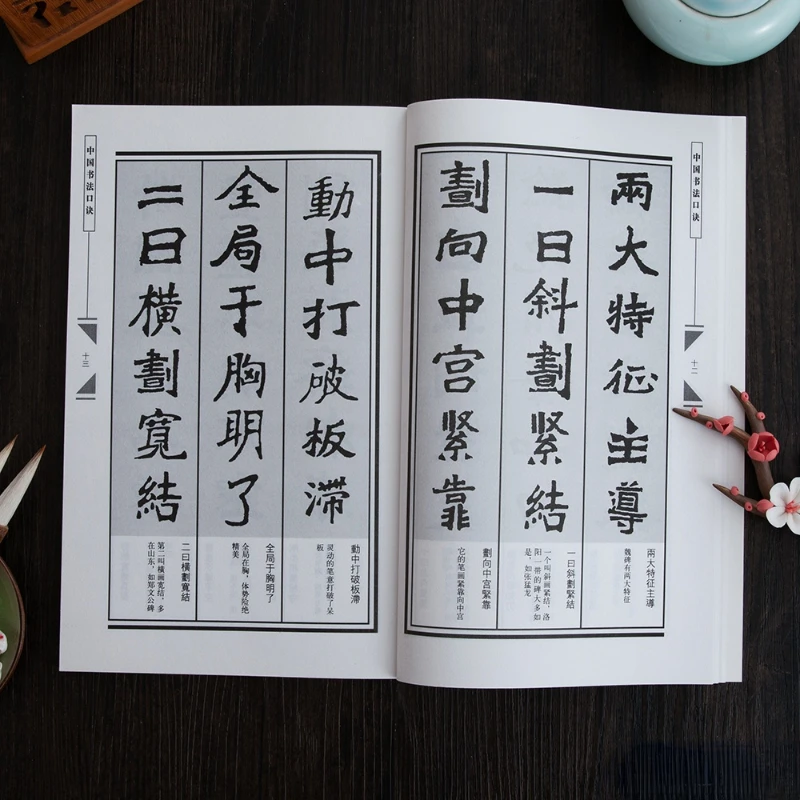 中国书法口诀
十二
兩大特征主導
一曰斜劃緊結
劃向中宫緊靠
兩大特征主導
魏碑有两大特征
一曰斜劃緊結
一个叫斜画紧结,洛
阳一带的碑大多如
是,如张猛龙
劃向中宫緊靠
它的笔画紧靠向中宫
動中打破板滞
全局于胸明了
二曰橫劃寬結
動中打破板滞
灵动的笔意打破了呆
板
全局于胸明了
全局在胸,体势险绝
精美
二曰橫劃寬結
第二叫横画宽结,多
在山东,如郑文公碑
中国书法口诀
十三